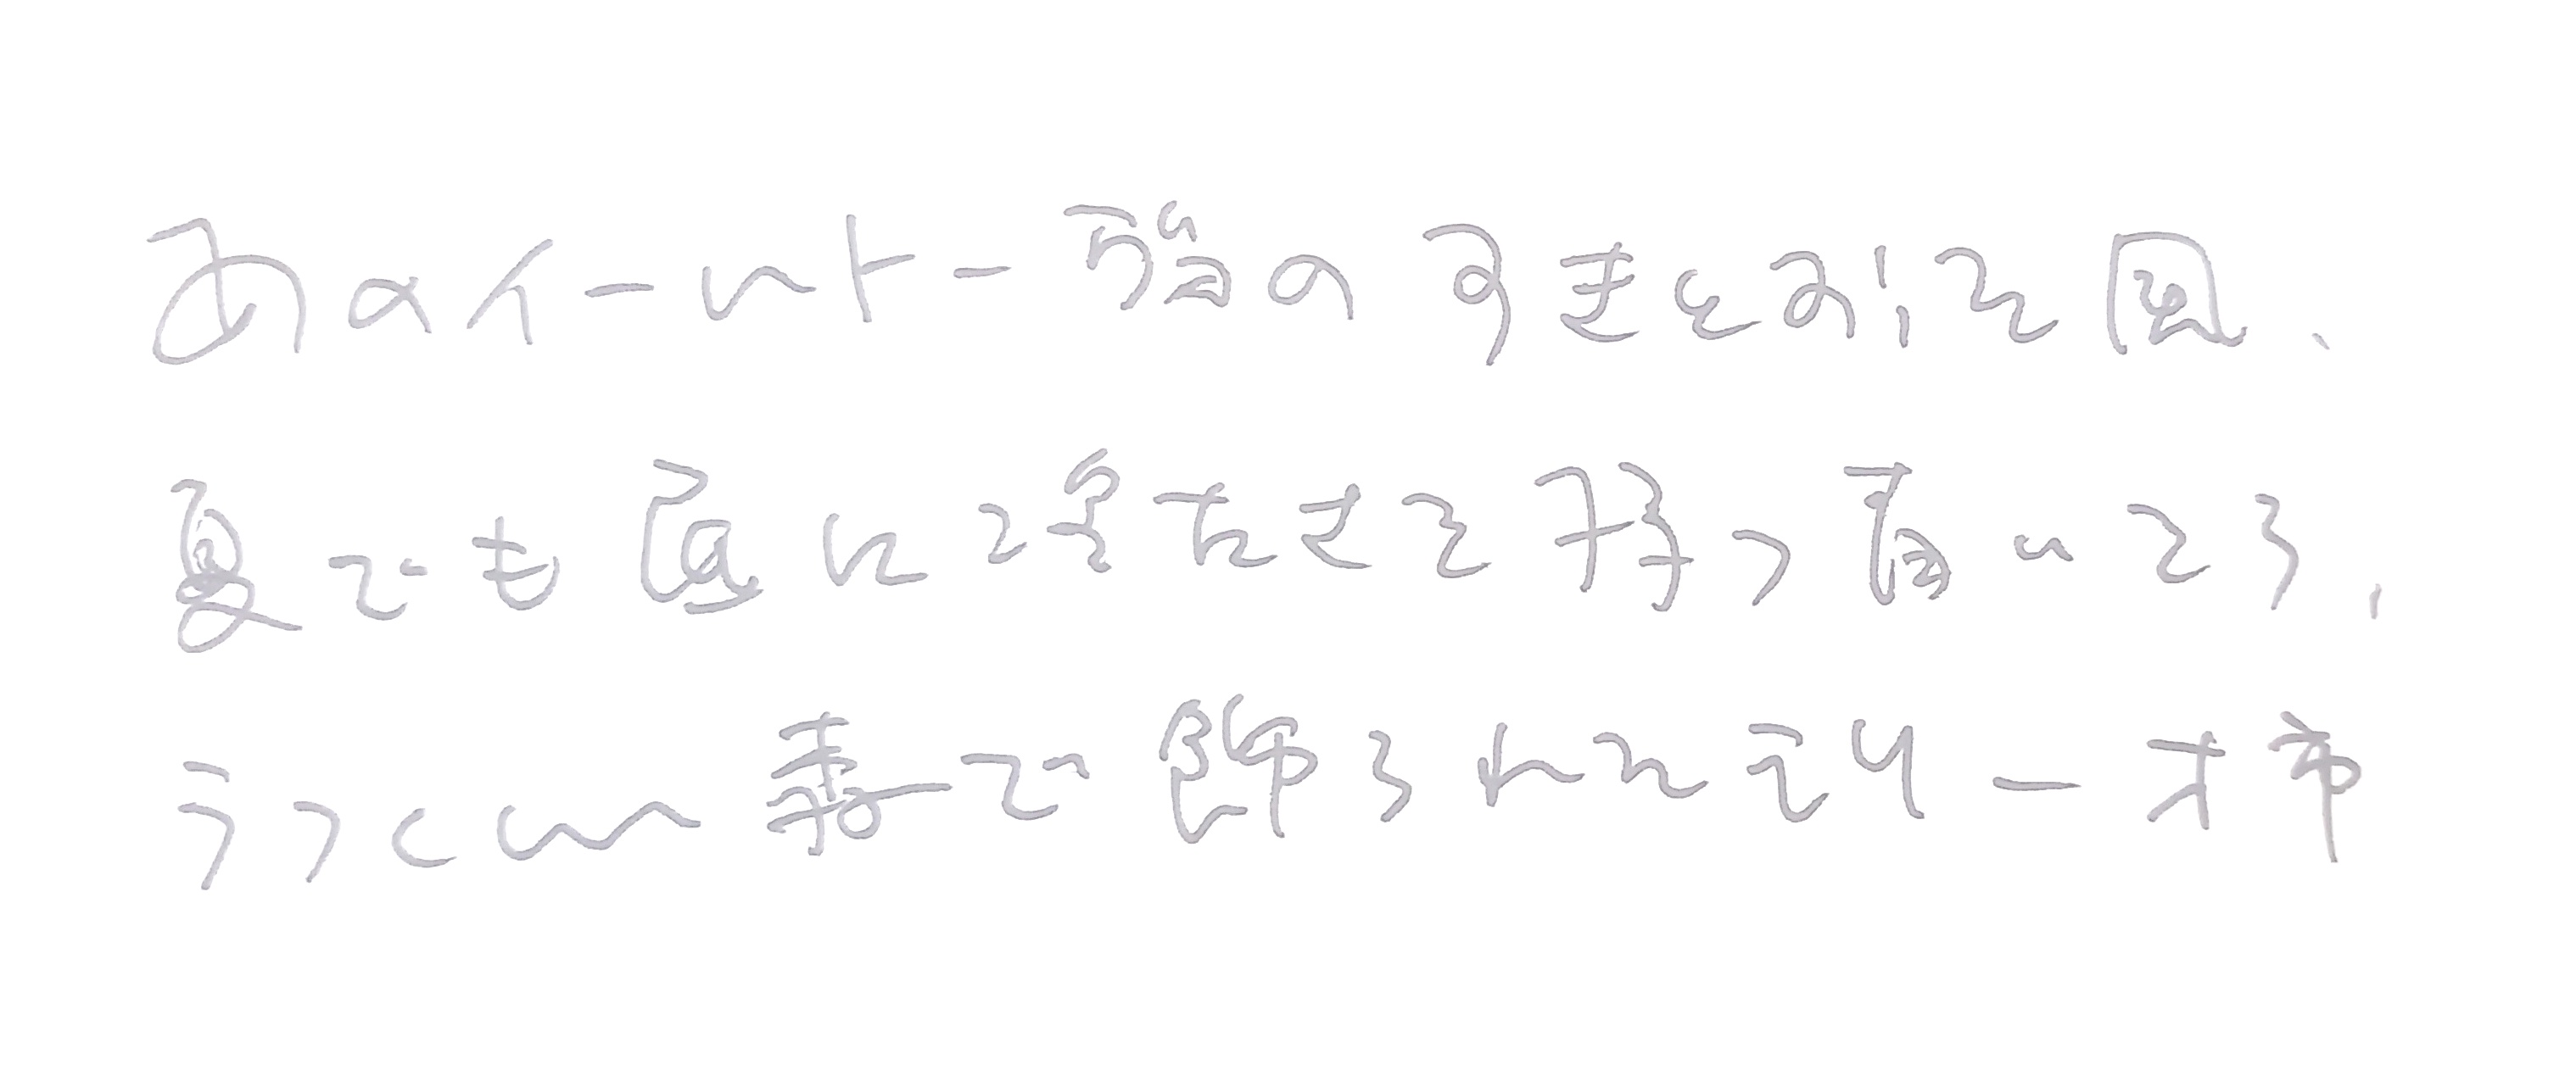 あのイーハトーヴォのすきとおった風、
夏でも底に冷たさを持つ青いそら、
うつくしい森で飾られたモリーオ市